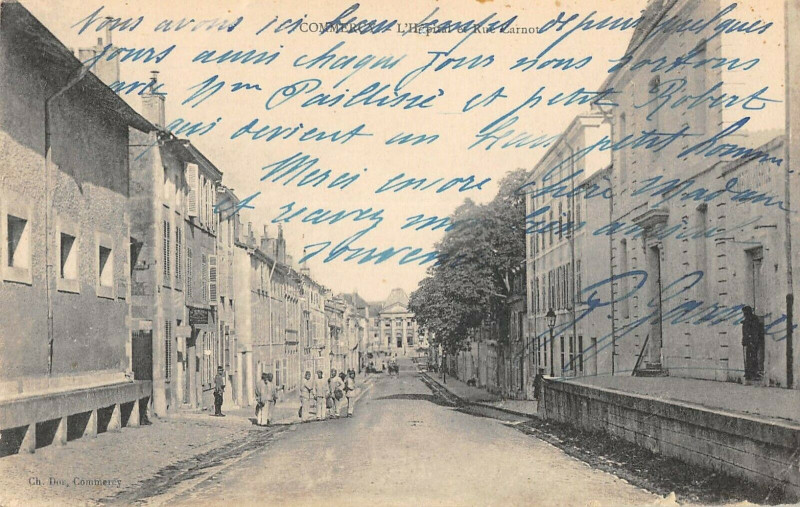 COMMERCY - L'Hôpital et Rue Carnot
Nous avons ici beau temps depuis quelques
jours aussi chaque jour nous sortons
avec Mme Paillissé et petit Robert
qui devient un beau petit homme
Merci encore chère Madame
et recevez nos
souvenirs
Ch. Dor, Commercy